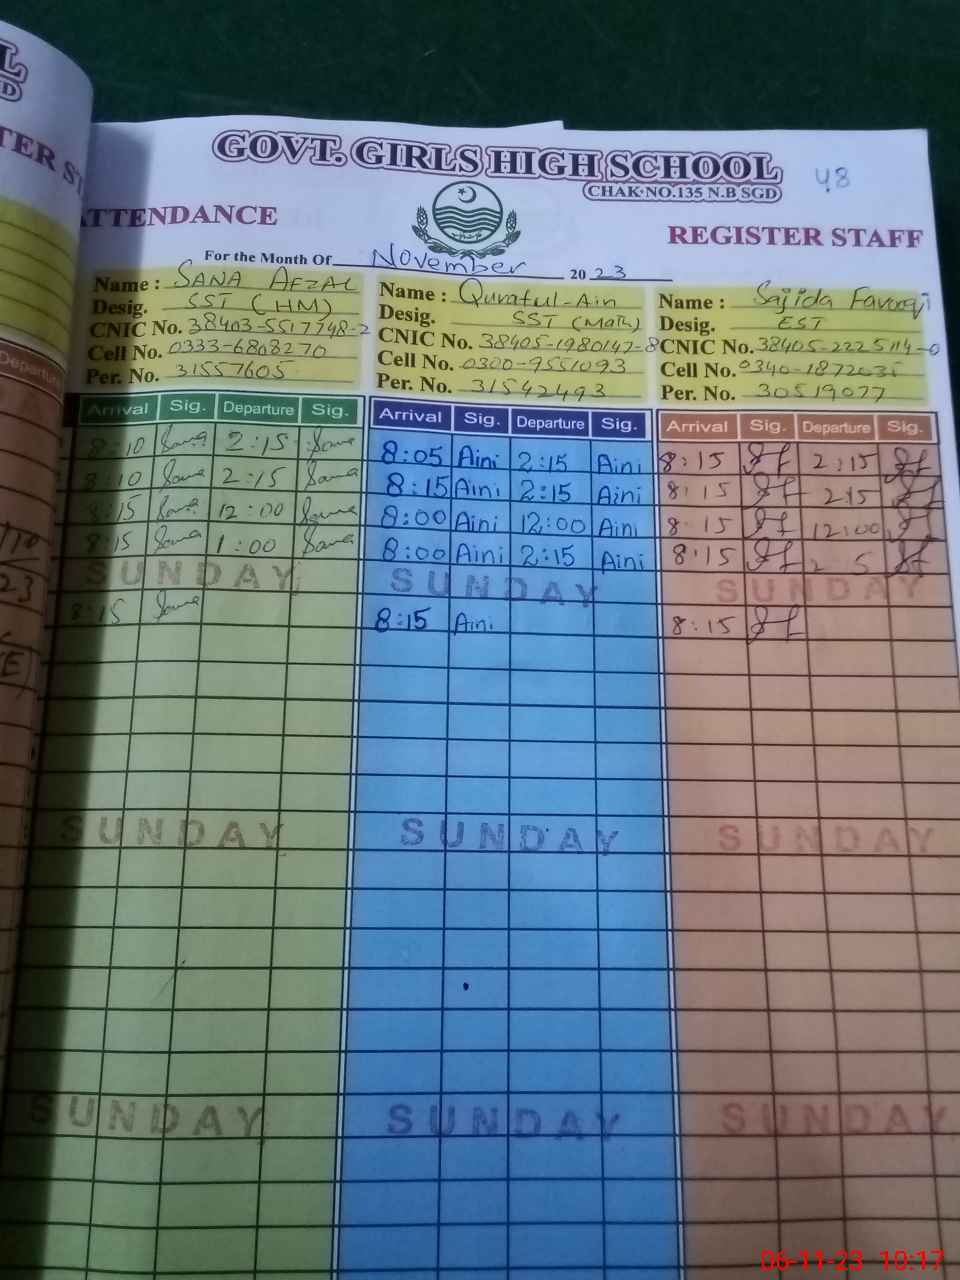 GOVT. GIRLS HIGH SCHOOL
CHAK NO.135 N.B SGD
48
ATTENDANCE REGISTER STAFF
For the Month Of November 2023
Name : SANA AFZAL
Desig. SST (HM)
CNIC No. 38403-5517748-2
Cell No. 0333-6808270
Per. No. 31557605
Name : Quratul-Ain
Desig. SST (Math)
CNIC No. 38405-1980147-8
Cell No. 0300-9551093
Per. No. 31542493
Name : Sajida Farooqi
Desig. EST
CNIC No. 38405-2225114-0
Cell No.
Per. No. 30519077
Arrival Sig. Departure Sig. Arrival Sig. Departure Sig. Arrival Sig. Departure Sig.
8:10 Sana 2:15 Sana 8:05 Aini 2:15 Aini 8:15 2:15
8:10 Sana 2:15 Sana 8:15 Aini 2:15 Aini 8:15 2:15
8:15 Sana 12:00 Sana 8:00 Aini 12:00 Aini 8:15 12:00
8:15 Sana 1:00 Sana 8:00 Aini 2:15 Aini 8:15
SUNDAY SUNDAY SUNDAY
8:15 Sana 8:15 Aini 8:15
SUNDAY SUNDAY SUNDAY
SUNDAY SUNDAY SUNDAY
06-11-23 10:17